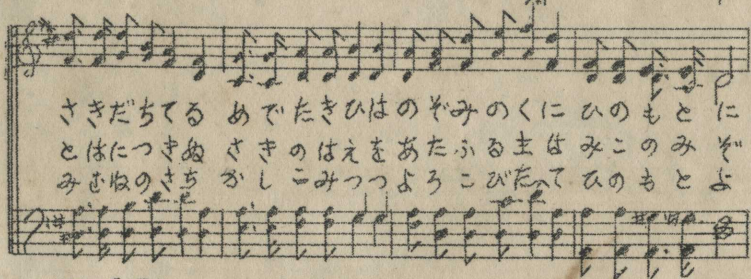 さきだちてる めでたきひは のぞみのくに ひのもとに
とはにつきぬ さきのはえを あたふる主は みこのみぞ
みむねのさち かしこみつつ よろこびたって ひのもとよ